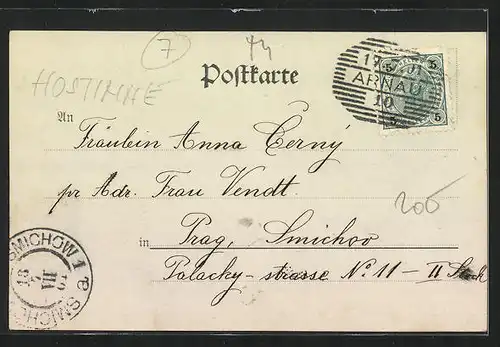 7
HOSTINNÉ
Postkarte
ARNAU
10
5 5
5 5
An
Fräulein Anna Černý
pr Adr. Frau Wendt.
in Prag, Smichov
Palacky-strasse No 11 - II Stock
200
SMICHOW 1
VII
SMICHOV